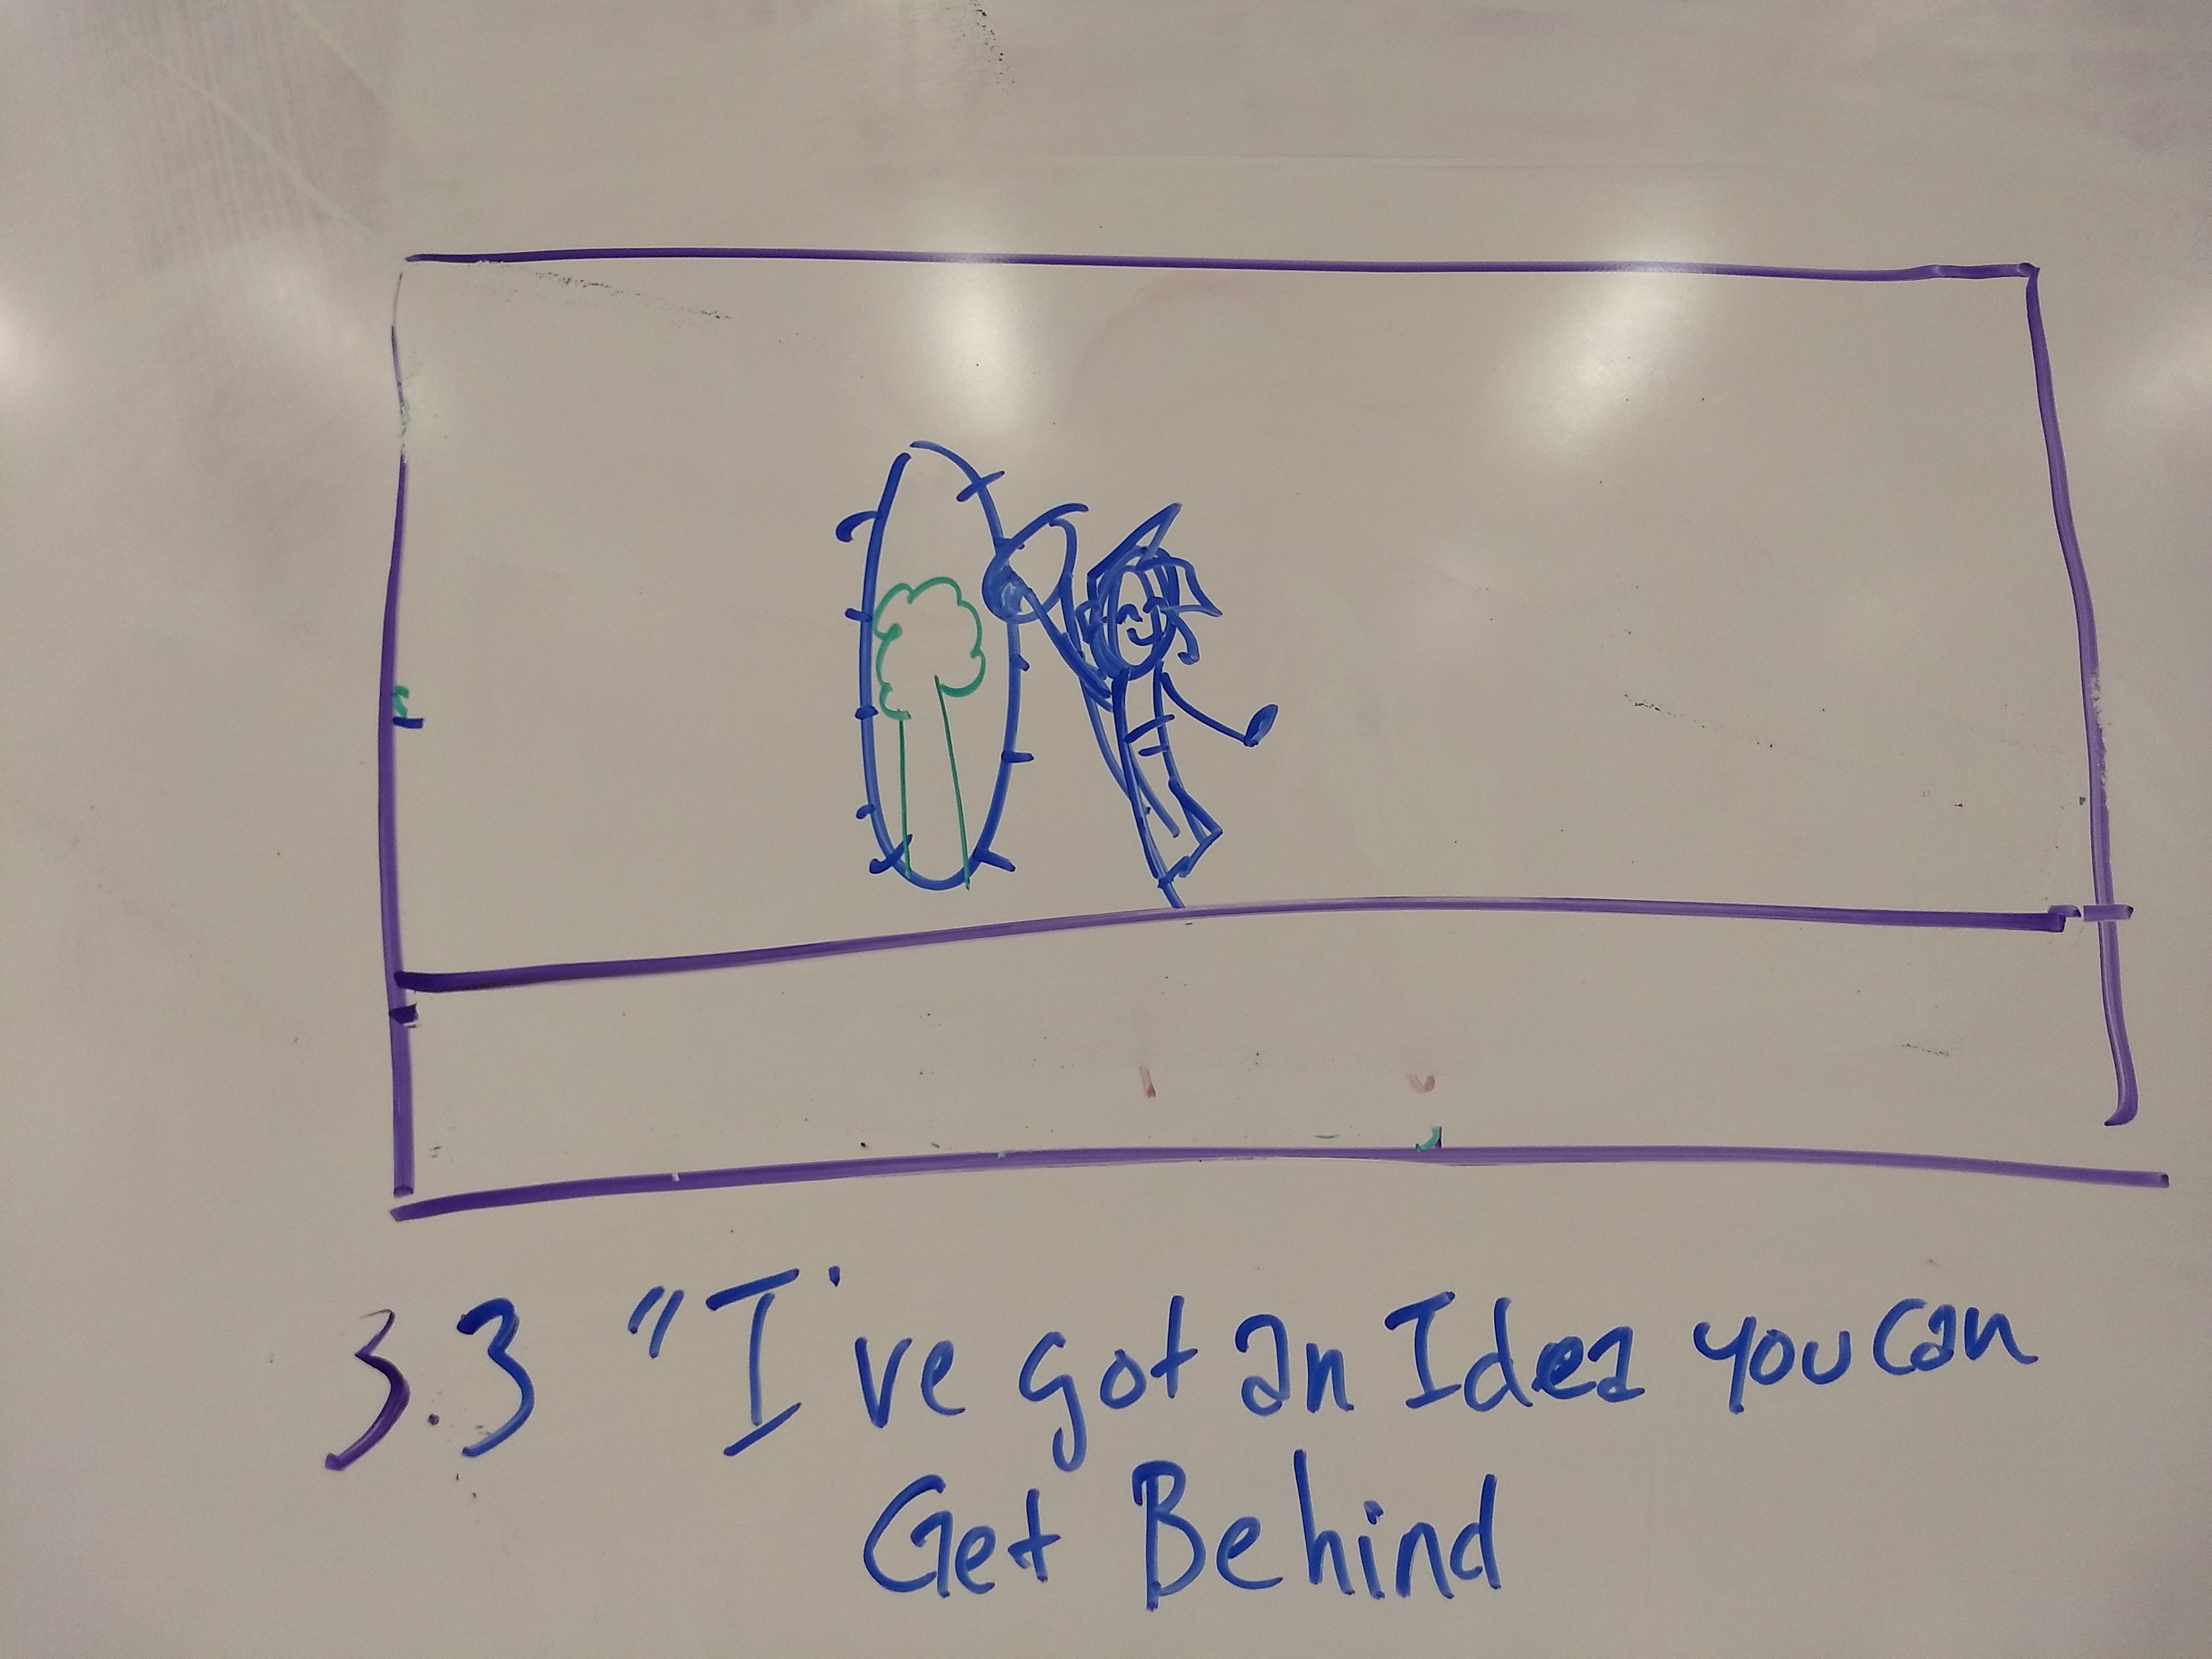 3.3 "I've got an Idea you can
Get Behind